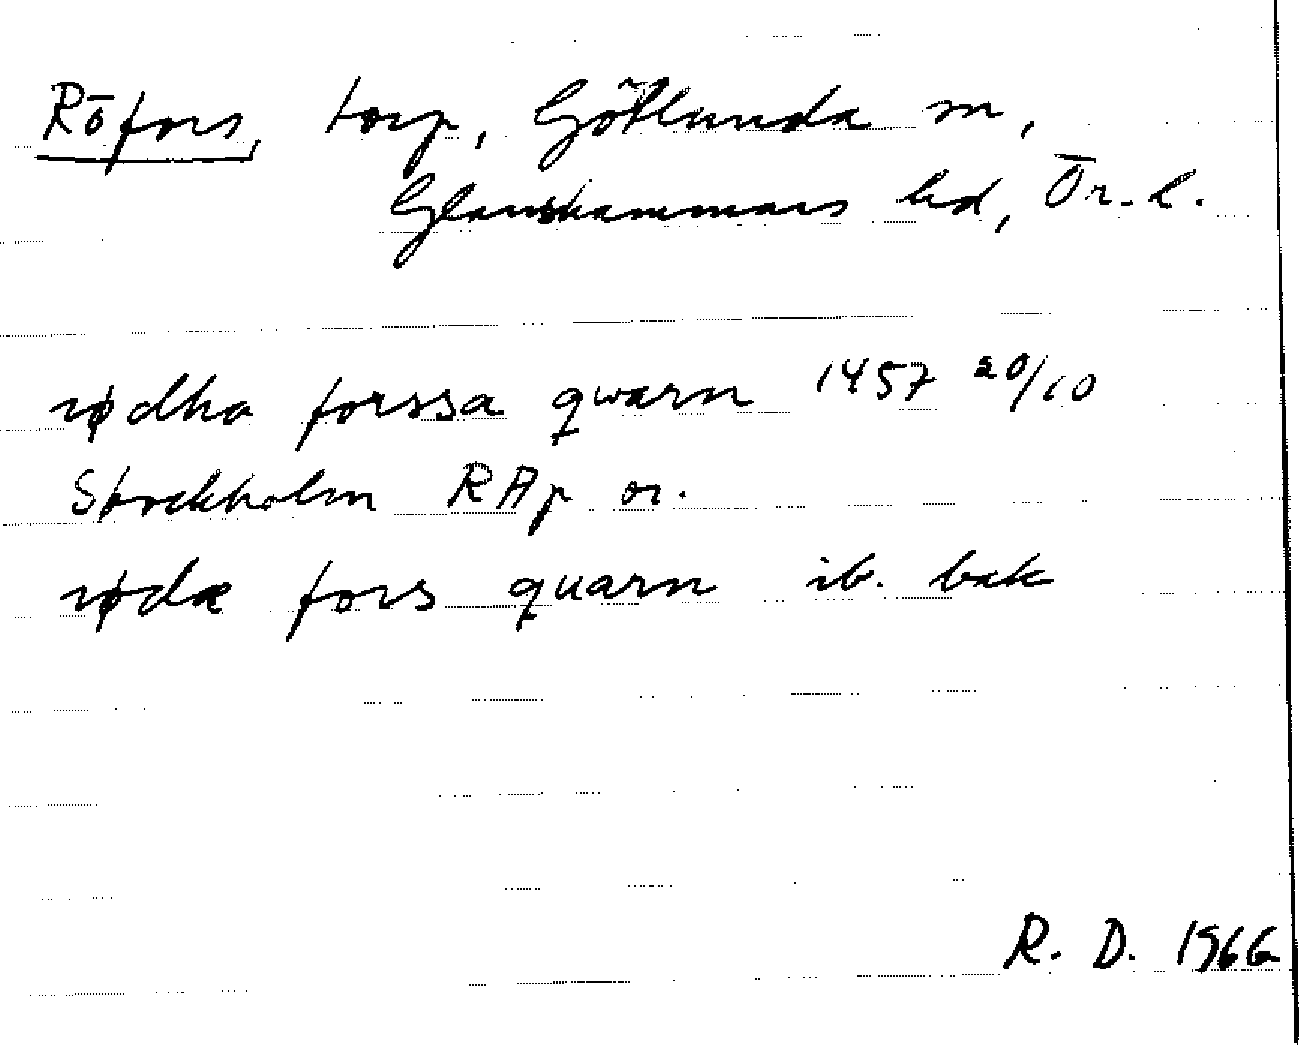 Röfors, torp, Götlunda sn,
Glanshammars hd, Ör. l.
rødha forssa qwarn 1457 20/10
Stockholm RAp or.
rødæ fors quarn ib. bak
R. D. 1966